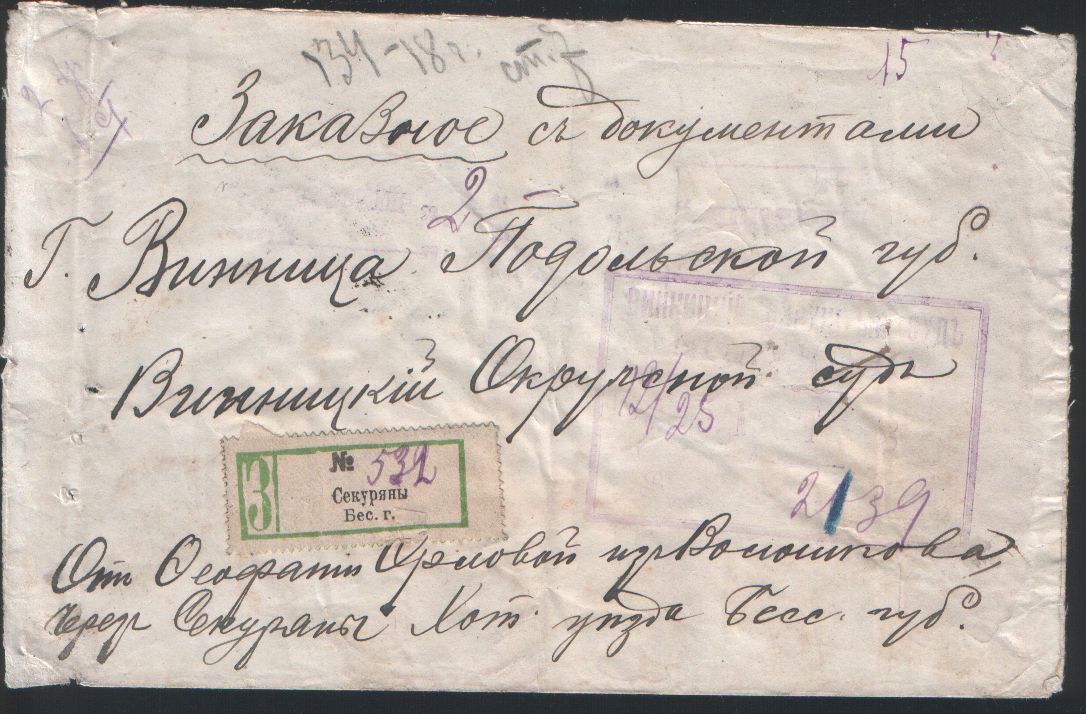 134-18 г. ст. 2
15
Заказное съ документами
2
Г. Винница Подольской губ.
Винницкій Окружной судъ
12/25
2139
З
№ 532
Секуряны
Бес. г.
От Феофании Орловой изъ Волошкова,
чрез Секуряны Хот. уезда Бесс. губ.